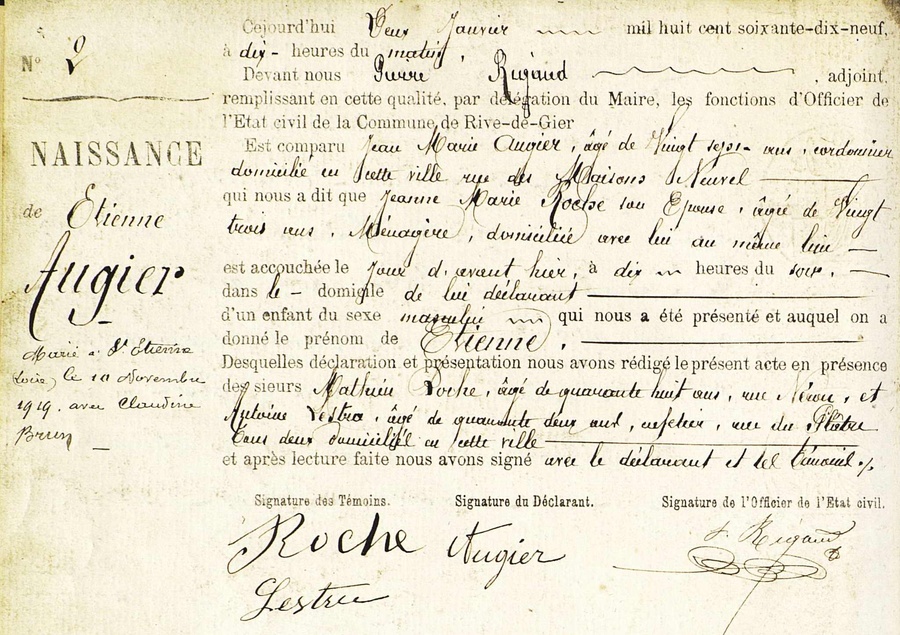 N° 2
NAISSANCE
de Etienne
Augier
Marié à St Etienne
(Loire) le 10 Novembre
1919. avec Claudine
Brun
Cejourd'hui Deux Janvier mil huit cent soixante-dix-neuf,
à dix- heures du matin,
Devant nous Pierre Rigaud, adjoint,
remplissant en cette qualité, par délégation du Maire, les fonctions d'Officier de
l'Etat civil de la Commune de Rive-de-Gier
Est comparu Jean Marie Augier, âgé de Vingt sept ans, cordonnier
domicilié en cette ville rue des Maisons Neuves
qui nous a dit que Jeanne Marie Roche son Epouse, âgée de Vingt
trois ans, Ménagère, domiciliée avec lui au même lieu
est accouchée le jour d'avant hier, à dix heures du soir,
dans le domicile de lui déclarant
d'un enfant du sexe masculin qui nous a été présenté et auquel on a
donné le prénom de Etienne.
Desquelles déclaration et présentation nous avons rédigé le présent acte en présence
des sieurs Mathieu Roche, âgé de quarante huit ans, rue Néron, et
Antoine Lestra, âgé de quarante deux ans, cafetier, rue du Plâtre
tous deux domiciliés en cette ville
et après lecture faite nous avons signé avec le déclarant et les témoins
Signature des Témoins. Signature du Déclarant. Signature de l'Officier de l'Etat civil.
Roche Augier Rigaud